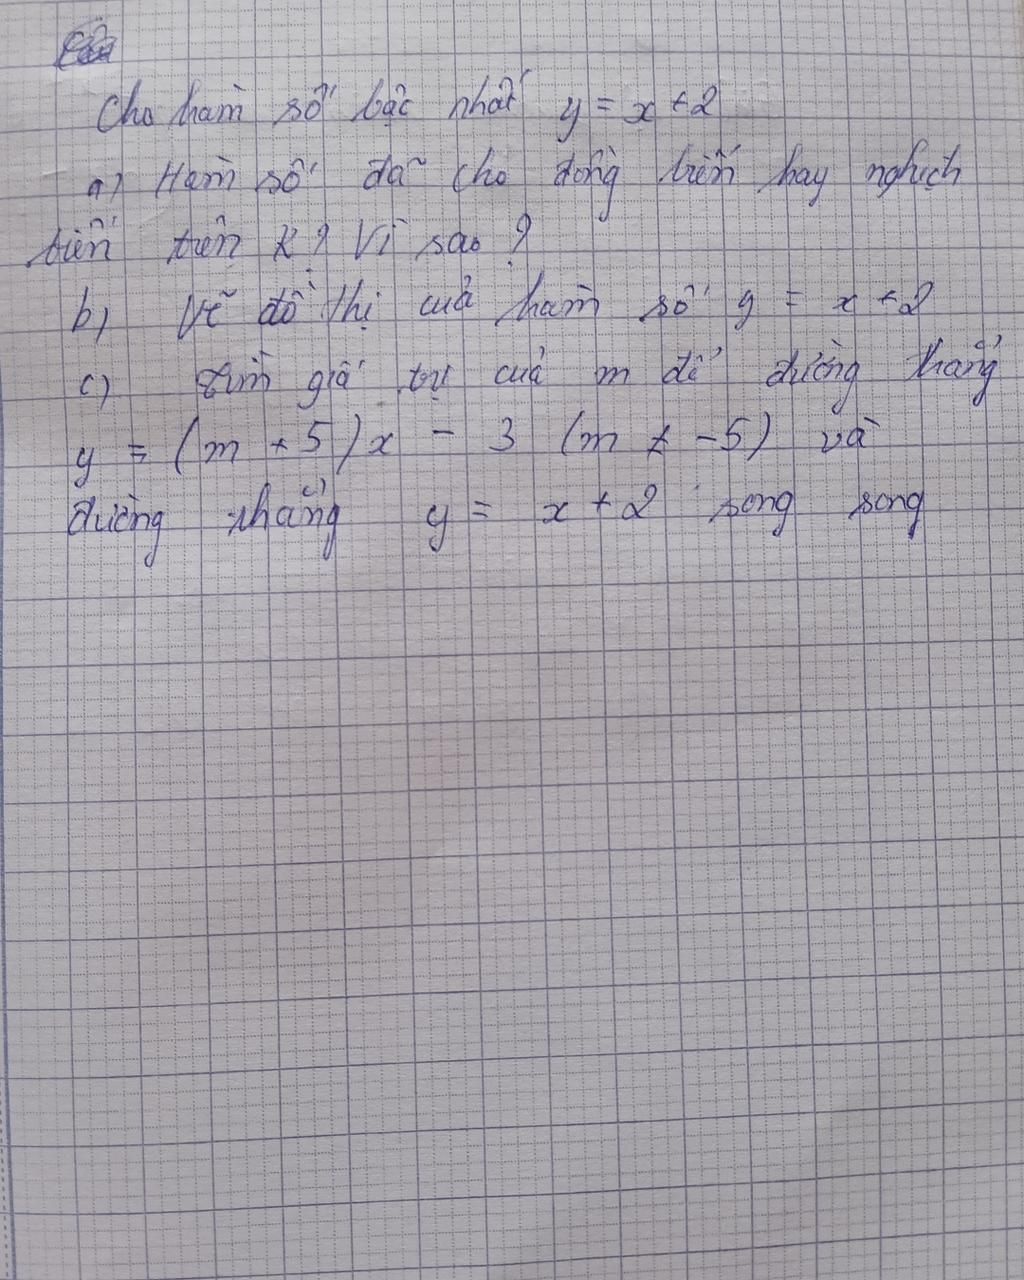 Cho hàm số bậc nhất y = x + 2
a) Hàm số đã cho đồng biến hay nghịch
biến trên R ? Vì sao ?
b) Vẽ đồ thị của hàm số y = x + 2
c) Tìm giá trị của m để đường thẳng
y = (m + 5)x - 3 (m ≠ -5) và
đường thẳng y = x + 2 song song